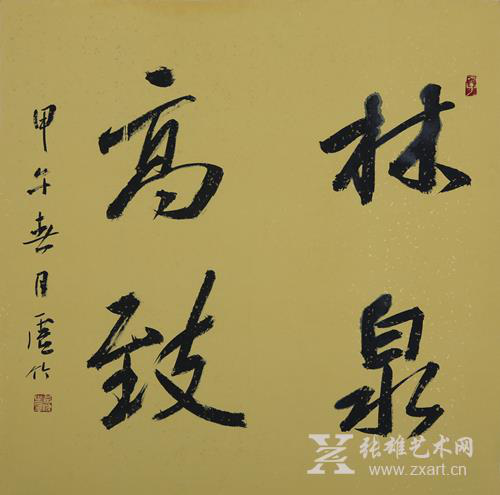 林泉
高致
甲午春月
张雄艺术网
www.zxart.cn